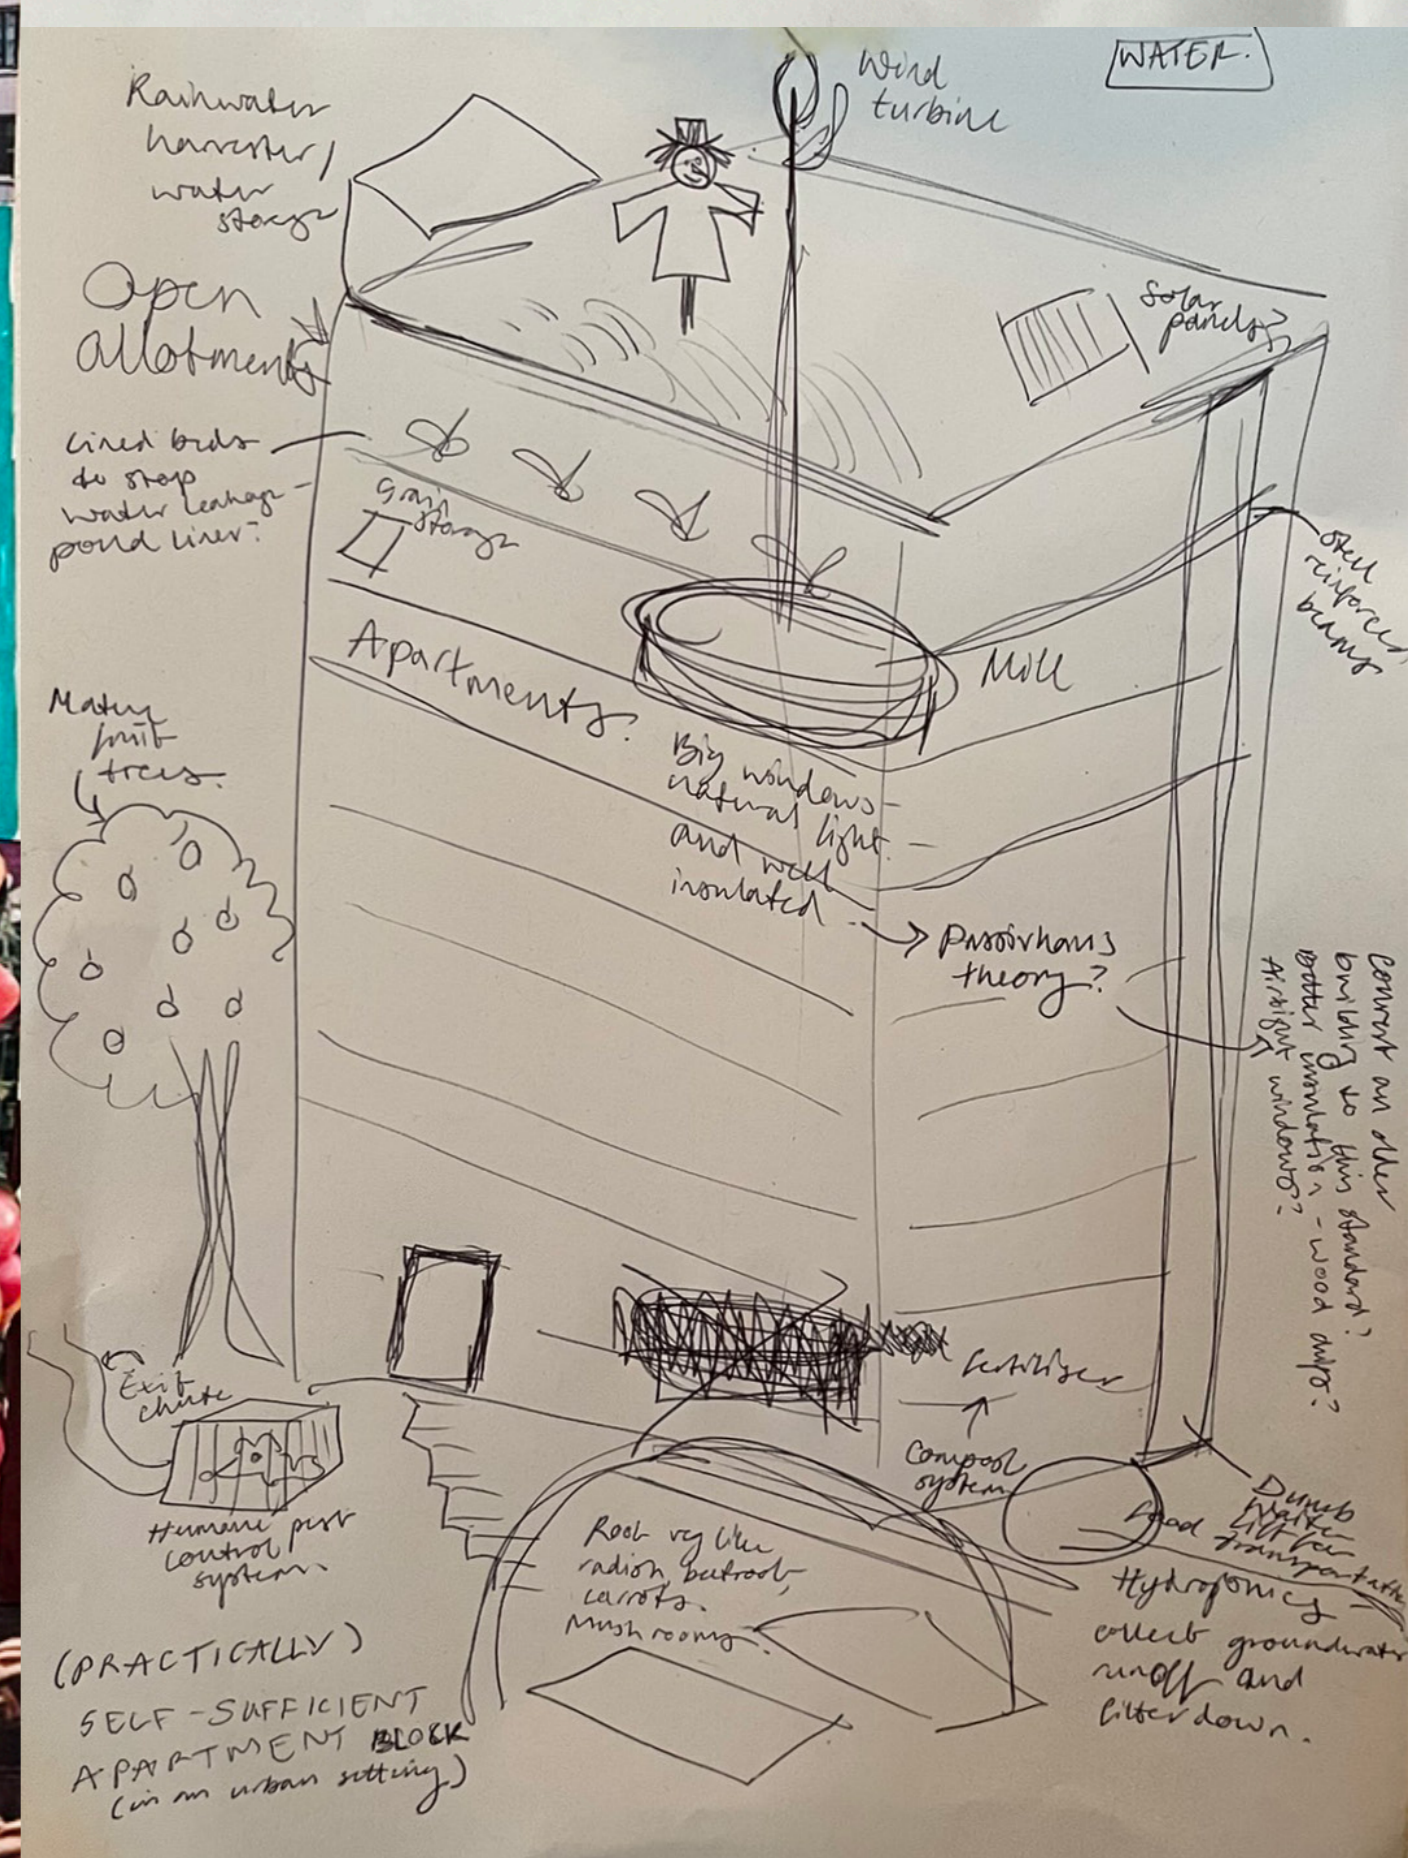 WATER.
Wind
turbine
Rainwater
harvester/
water
storage
Open
allotments
Solar
panels?
Lined beds
to stop
water leakage -
pond liner?
Grain
storage
Steel
reinforced
beams
Apartments?
Mill
Mature
fruit
trees.
Big windows -
natural light. -
and well
insulated
Passivhaus
theory?
Convert an older
building to this standard?
Better insulation - wood chips?
Airtight windows?
Exit
chute
Humane pest
control
system
fertiliser
Compost
system
food
Dumb
waiter
lift for
transportation
Root veg like
radish, beetroot,
carrots.
Mushrooms.
Hydroponics
collect groundwater
runoff and
filter down.
(PRACTICALLY)
SELF-SUFFICIENT
APARTMENT BLOCK
(in an urban setting)